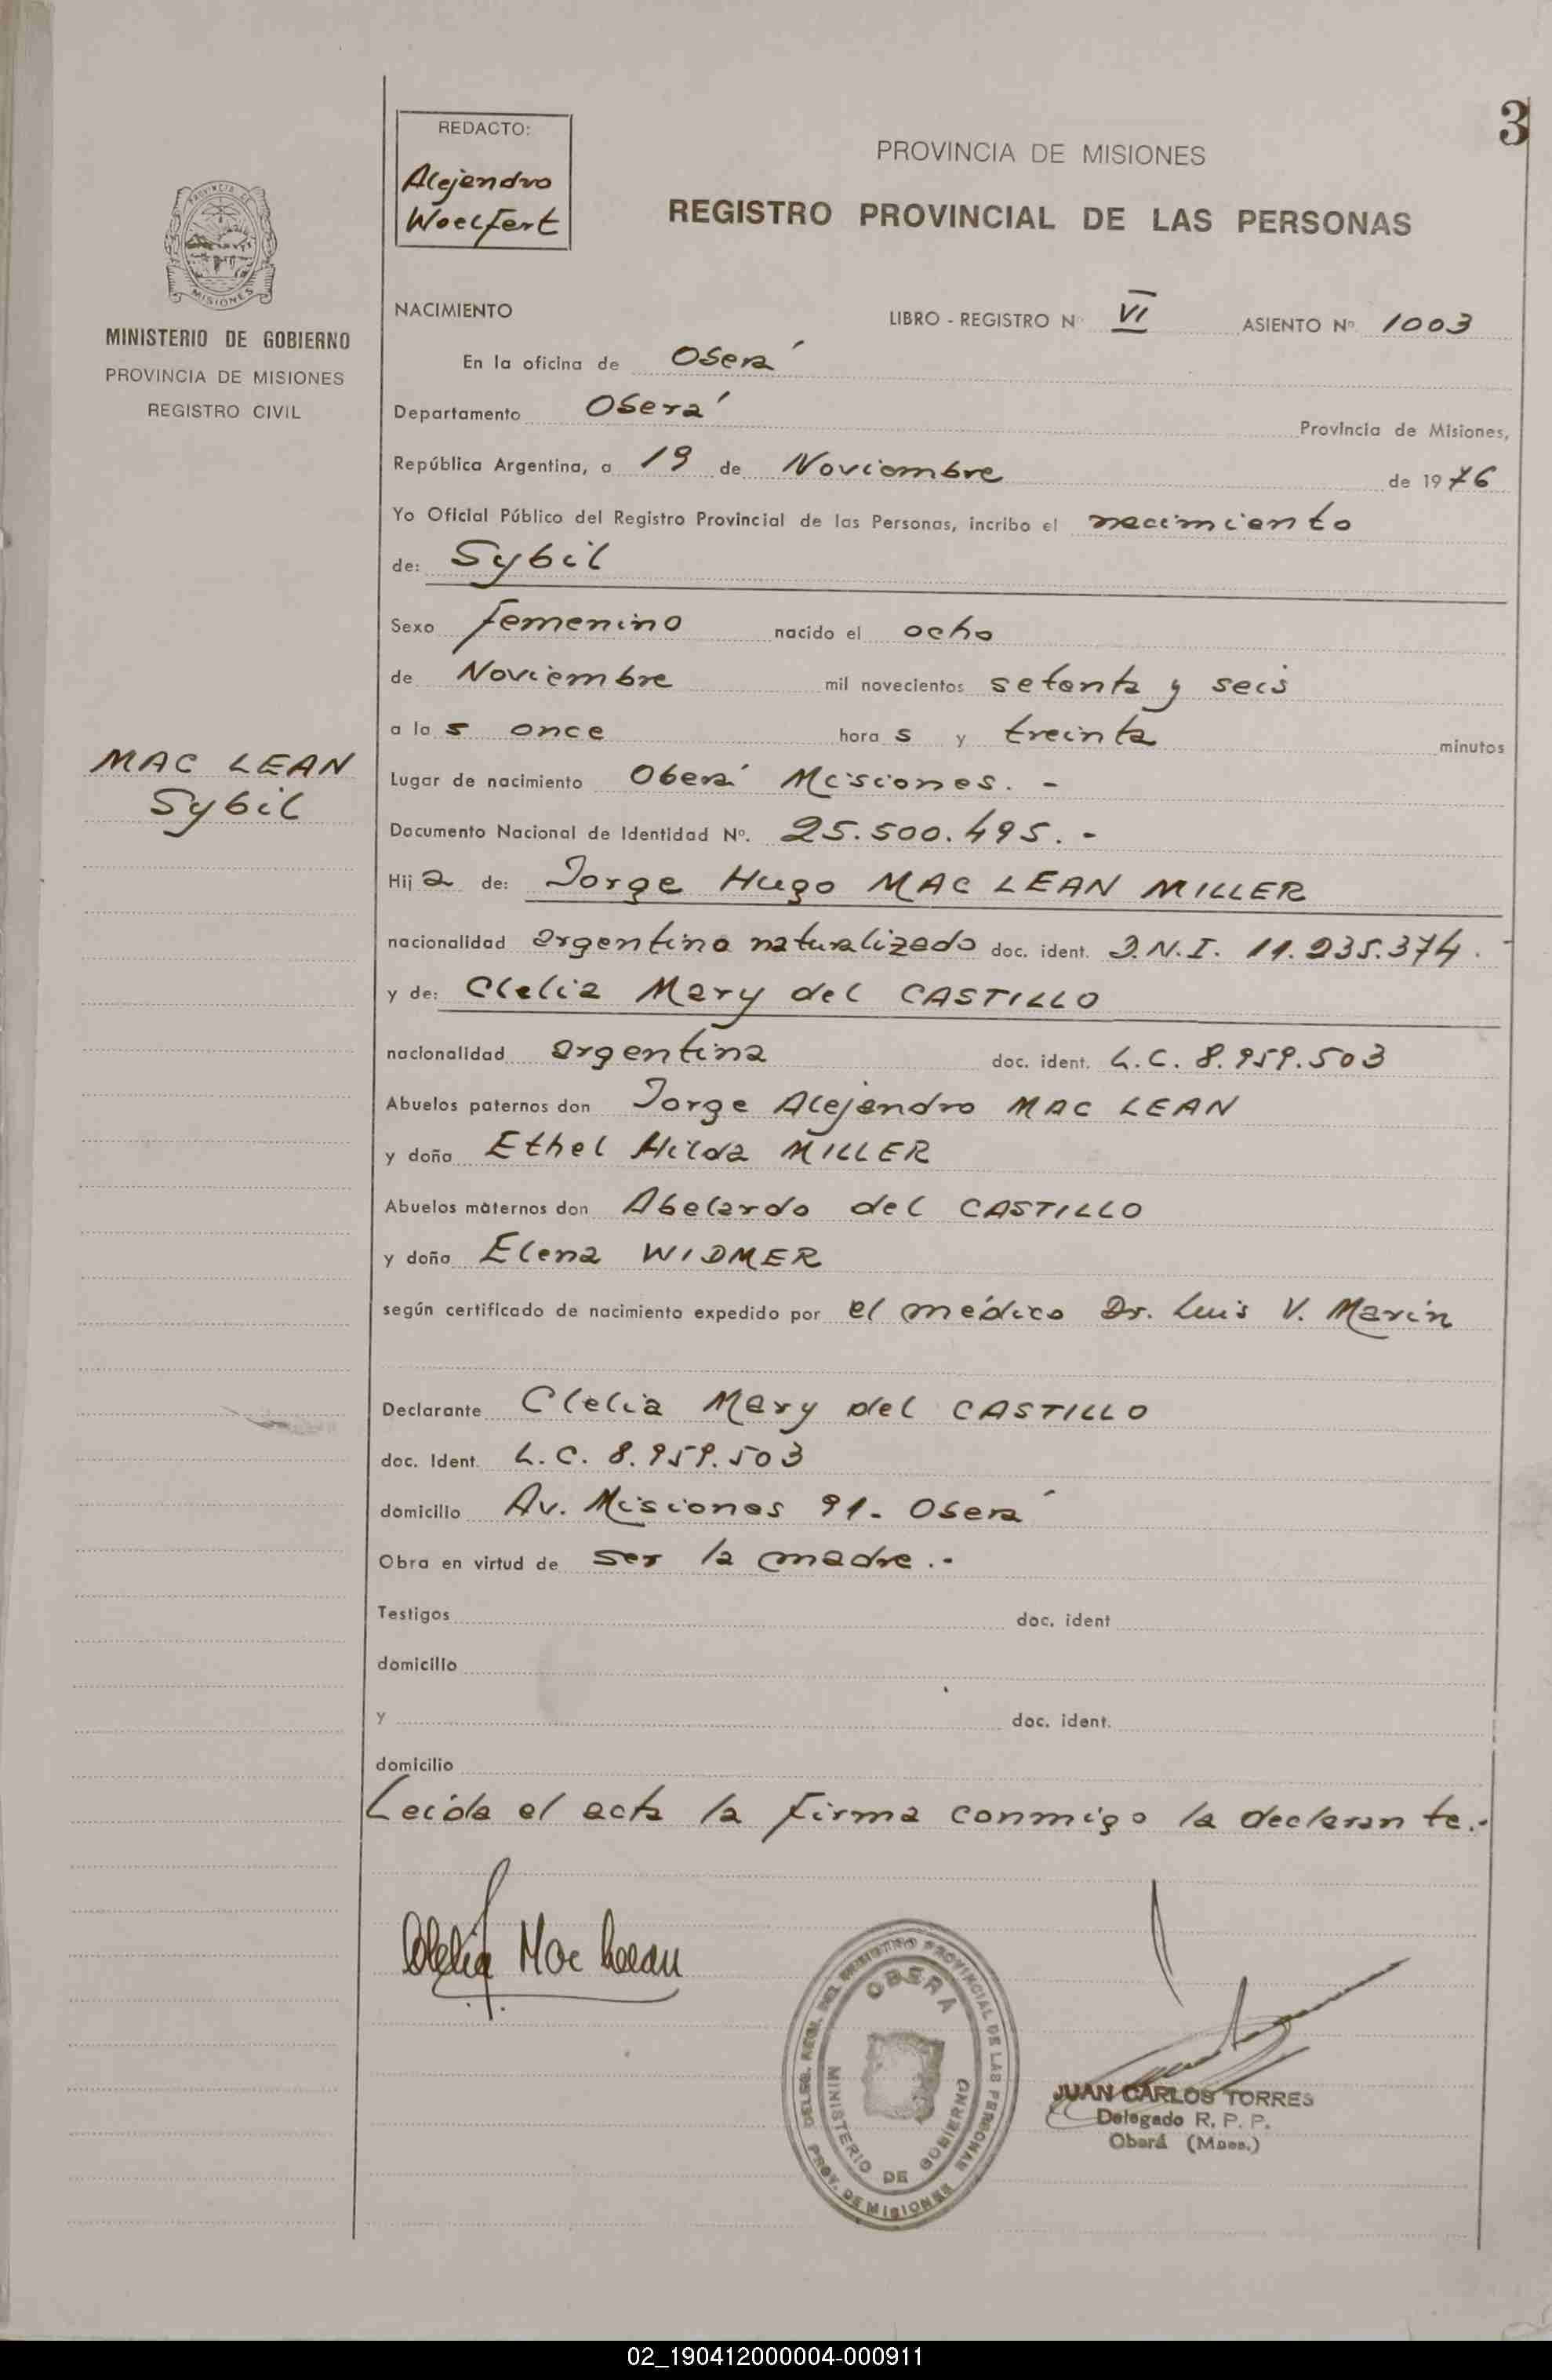 3
REDACTO:
Alejandro
Woelfert
PROVINCIA DE MISIONES
REGISTRO PROVINCIAL DE LAS PERSONAS
PROVINCIA DE
MISIONES
MINISTERIO DE GOBIERNO
PROVINCIA DE MISIONES
REGISTRO CIVIL
MAC LEAN
Sybil
NACIMIENTO LIBRO - REGISTRO Nº VI ASIENTO Nº 1003
En la oficina de Oberá
Departamento Oberá Provincia de Misiones,
República Argentina, a 19 de Noviembre de 1976
Yo Oficial Público del Registro Provincial de las Personas, incribo el nacimiento
de: Sybil
Sexo femenino nacido el ocho
de Noviembre mil novecientos setenta y seis
a las once horas y treinta minutos
Lugar de nacimiento Oberá Misiones. -
Documento Nacional de Identidad Nº. 25.500.495. -
Hija de: Jorge Hugo MAC LEAN MILLER
nacionalidad argentino naturalizado doc. ident. D.N.I. 11.235.374. -
y de: Clelia Mary del CASTILLO
nacionalidad argentina doc. ident. L.C. 8.959.503
Abuelos paternos don Jorge Alejandro MAC LEAN
y doña Ethel Hilda MILLER
Abuelos maternos don Abelardo del CASTILLO
y doña Elena WIDMER
según certificado de nacimiento expedido por el médico Dr. Luis V. Marin
Declarante Clelia Mary del CASTILLO
doc. Ident. L.C. 8.959.503
domicilio Av. Misiones 91- Oberá
Obra en virtud de ser la madre.-
Testigos doc. ident
domicilio
y doc. ident.
domicilio
Leída el acta la firma conmigo la declarante.-
Clelia Mac Lean
DELEG. REGL. DEL REGISTRO PROVINCIAL DE LAS PERSONAS
OBERA
MINISTERIO DE GOBIERNO
PROV. DE MISIONES
JUAN CARLOS TORRES
Delegado R. P. P.
Oberá (Mnes.)
02_190412000004-000911